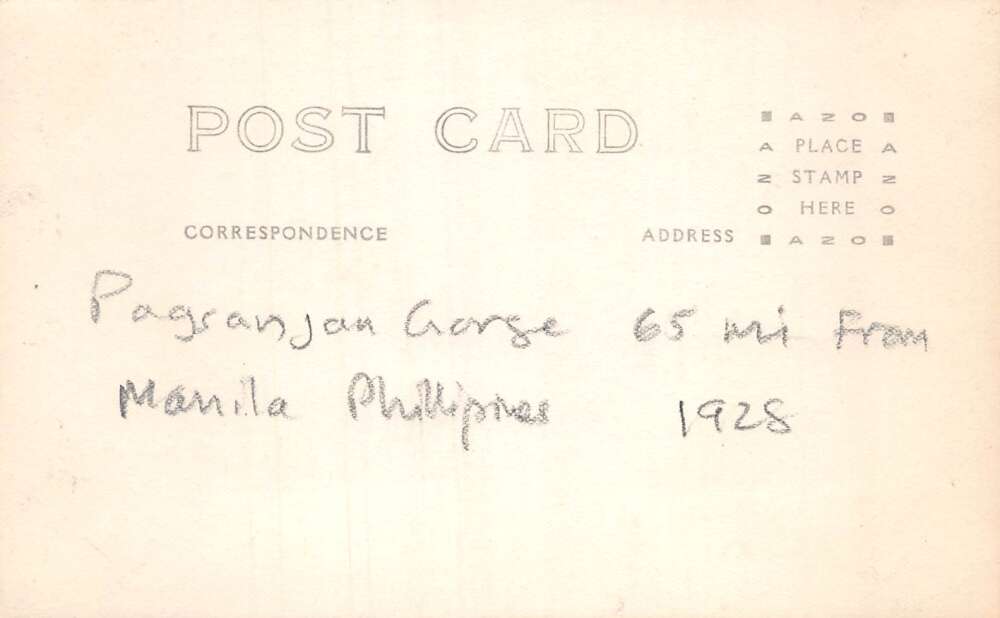 POST CARD
AZO
A PLACE A
Z STAMP Z
O HERE O
AZO
CORRESPONDENCE
ADDRESS
Pagsanjan Gorge 65 mi From
Manila Phillipines 1928